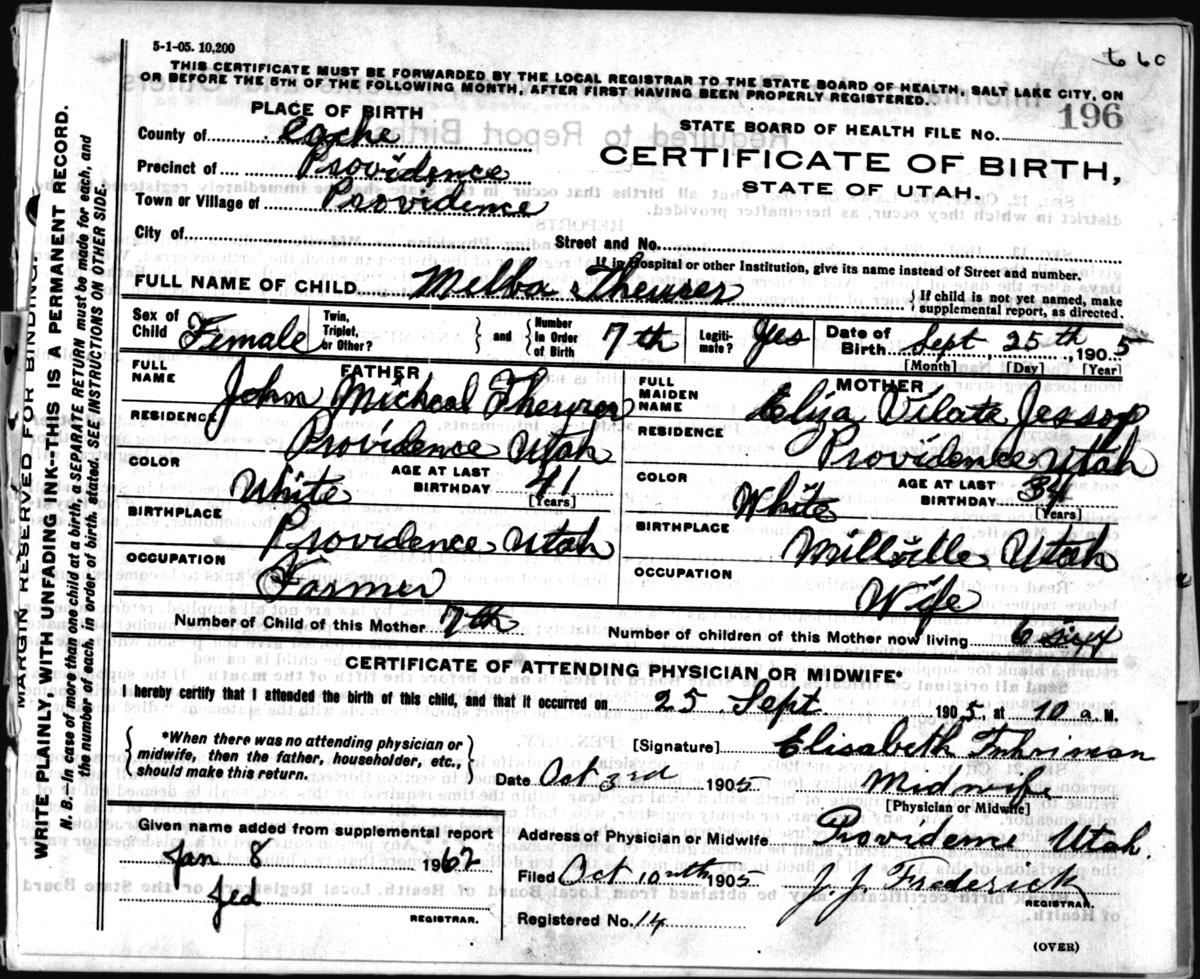 5-1-05. 10,200
660
THIS CERTIFICATE MUST BE FORWARDED BY THE LOCAL REGISTRAR TO THE STATE BOARD OF HEALTH, SALT LAKE CITY, ON
OR BEFORE THE 5TH OF THE FOLLOWING MONTH, AFTER FIRST HAVING BEEN PROPERLY REGISTERED.
PLACE OF BIRTH
STATE BOARD OF HEALTH FILE NO. 196
County of Cache
CERTIFICATE OF BIRTH,
Precinct of Providence
STATE OF UTAH.
Town or Village of Providence
City of Street and No.
If in Hospital or other Institution, give its name instead of Street and number.
FULL NAME OF CHILD Melba Theurer
{ If child is not yet named, make
supplemental report, as directed.
Sex of Child Female
Twin, Triplet, or Other? } and { Number in Order of Birth 7th
Legiti-mate? Yes
Date of Birth Sept 25th, 1905
[Month] [Day] [Year]
FATHER
FULL NAME John Micheal Theurer
RESIDENCE Providence Utah
COLOR White AGE AT LAST BIRTHDAY 41
[Years]
BIRTHPLACE Providence Utah
OCCUPATION Farmer
MOTHER
FULL MAIDEN NAME Eliza Vilate Jessop
RESIDENCE Providence Utah
COLOR White AGE AT LAST BIRTHDAY 34
[Years]
BIRTHPLACE Millville Utah
OCCUPATION Wife
Number of Child of this Mother 7th Number of children of this Mother now living 6
CERTIFICATE OF ATTENDING PHYSICIAN OR MIDWIFE*
I hereby certify that I attended the birth of this child, and that it occurred on 25 Sept 1905, at 10 a M.
{ *When there was no attending physician or
midwife, then the father, householder, etc.,
should make this return. }
[Signature] Elisabeth Fuhriman
Date Oct 3rd 1905 Midwife
[Physician or Midwife]
Given name added from supplemental report
Jan 8 1962
Jed
REGISTRAR.
Address of Physician or Midwife Providence Utah.
Filed Oct 10th 1905 J. J. Frederick
REGISTRAR.
Registered No. 14
(OVER)
MARGIN RESERVED FOR BINDING.
WRITE PLAINLY, WITH UNFADING INK--THIS IS A PERMANENT RECORD.
N. B.--In case of more than one child at a birth, a SEPARATE RETURN must be made for each, and
the number of each, in order of birth, stated. SEE INSTRUCTIONS ON OTHER SIDE.